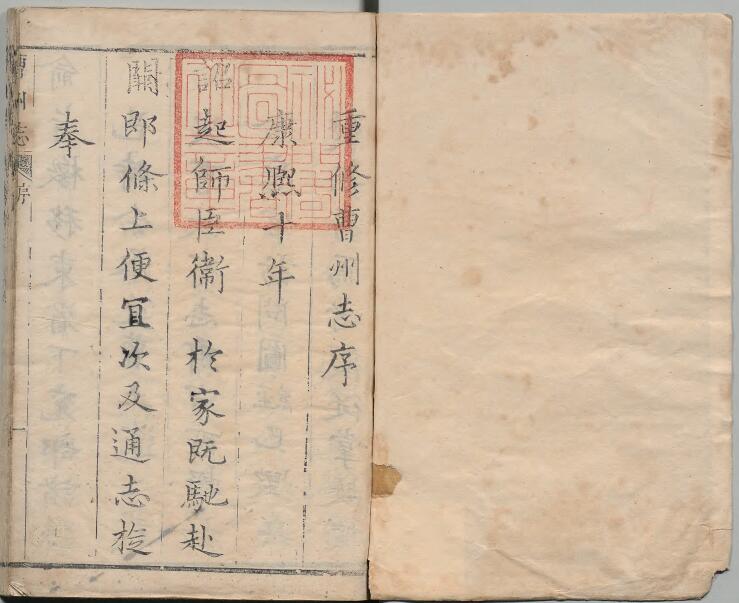 重修曹州志序
康熙十年
詔起師臣衛於家既馳赴
闕郎條上便冝次及通志於
奉
曹州志 序